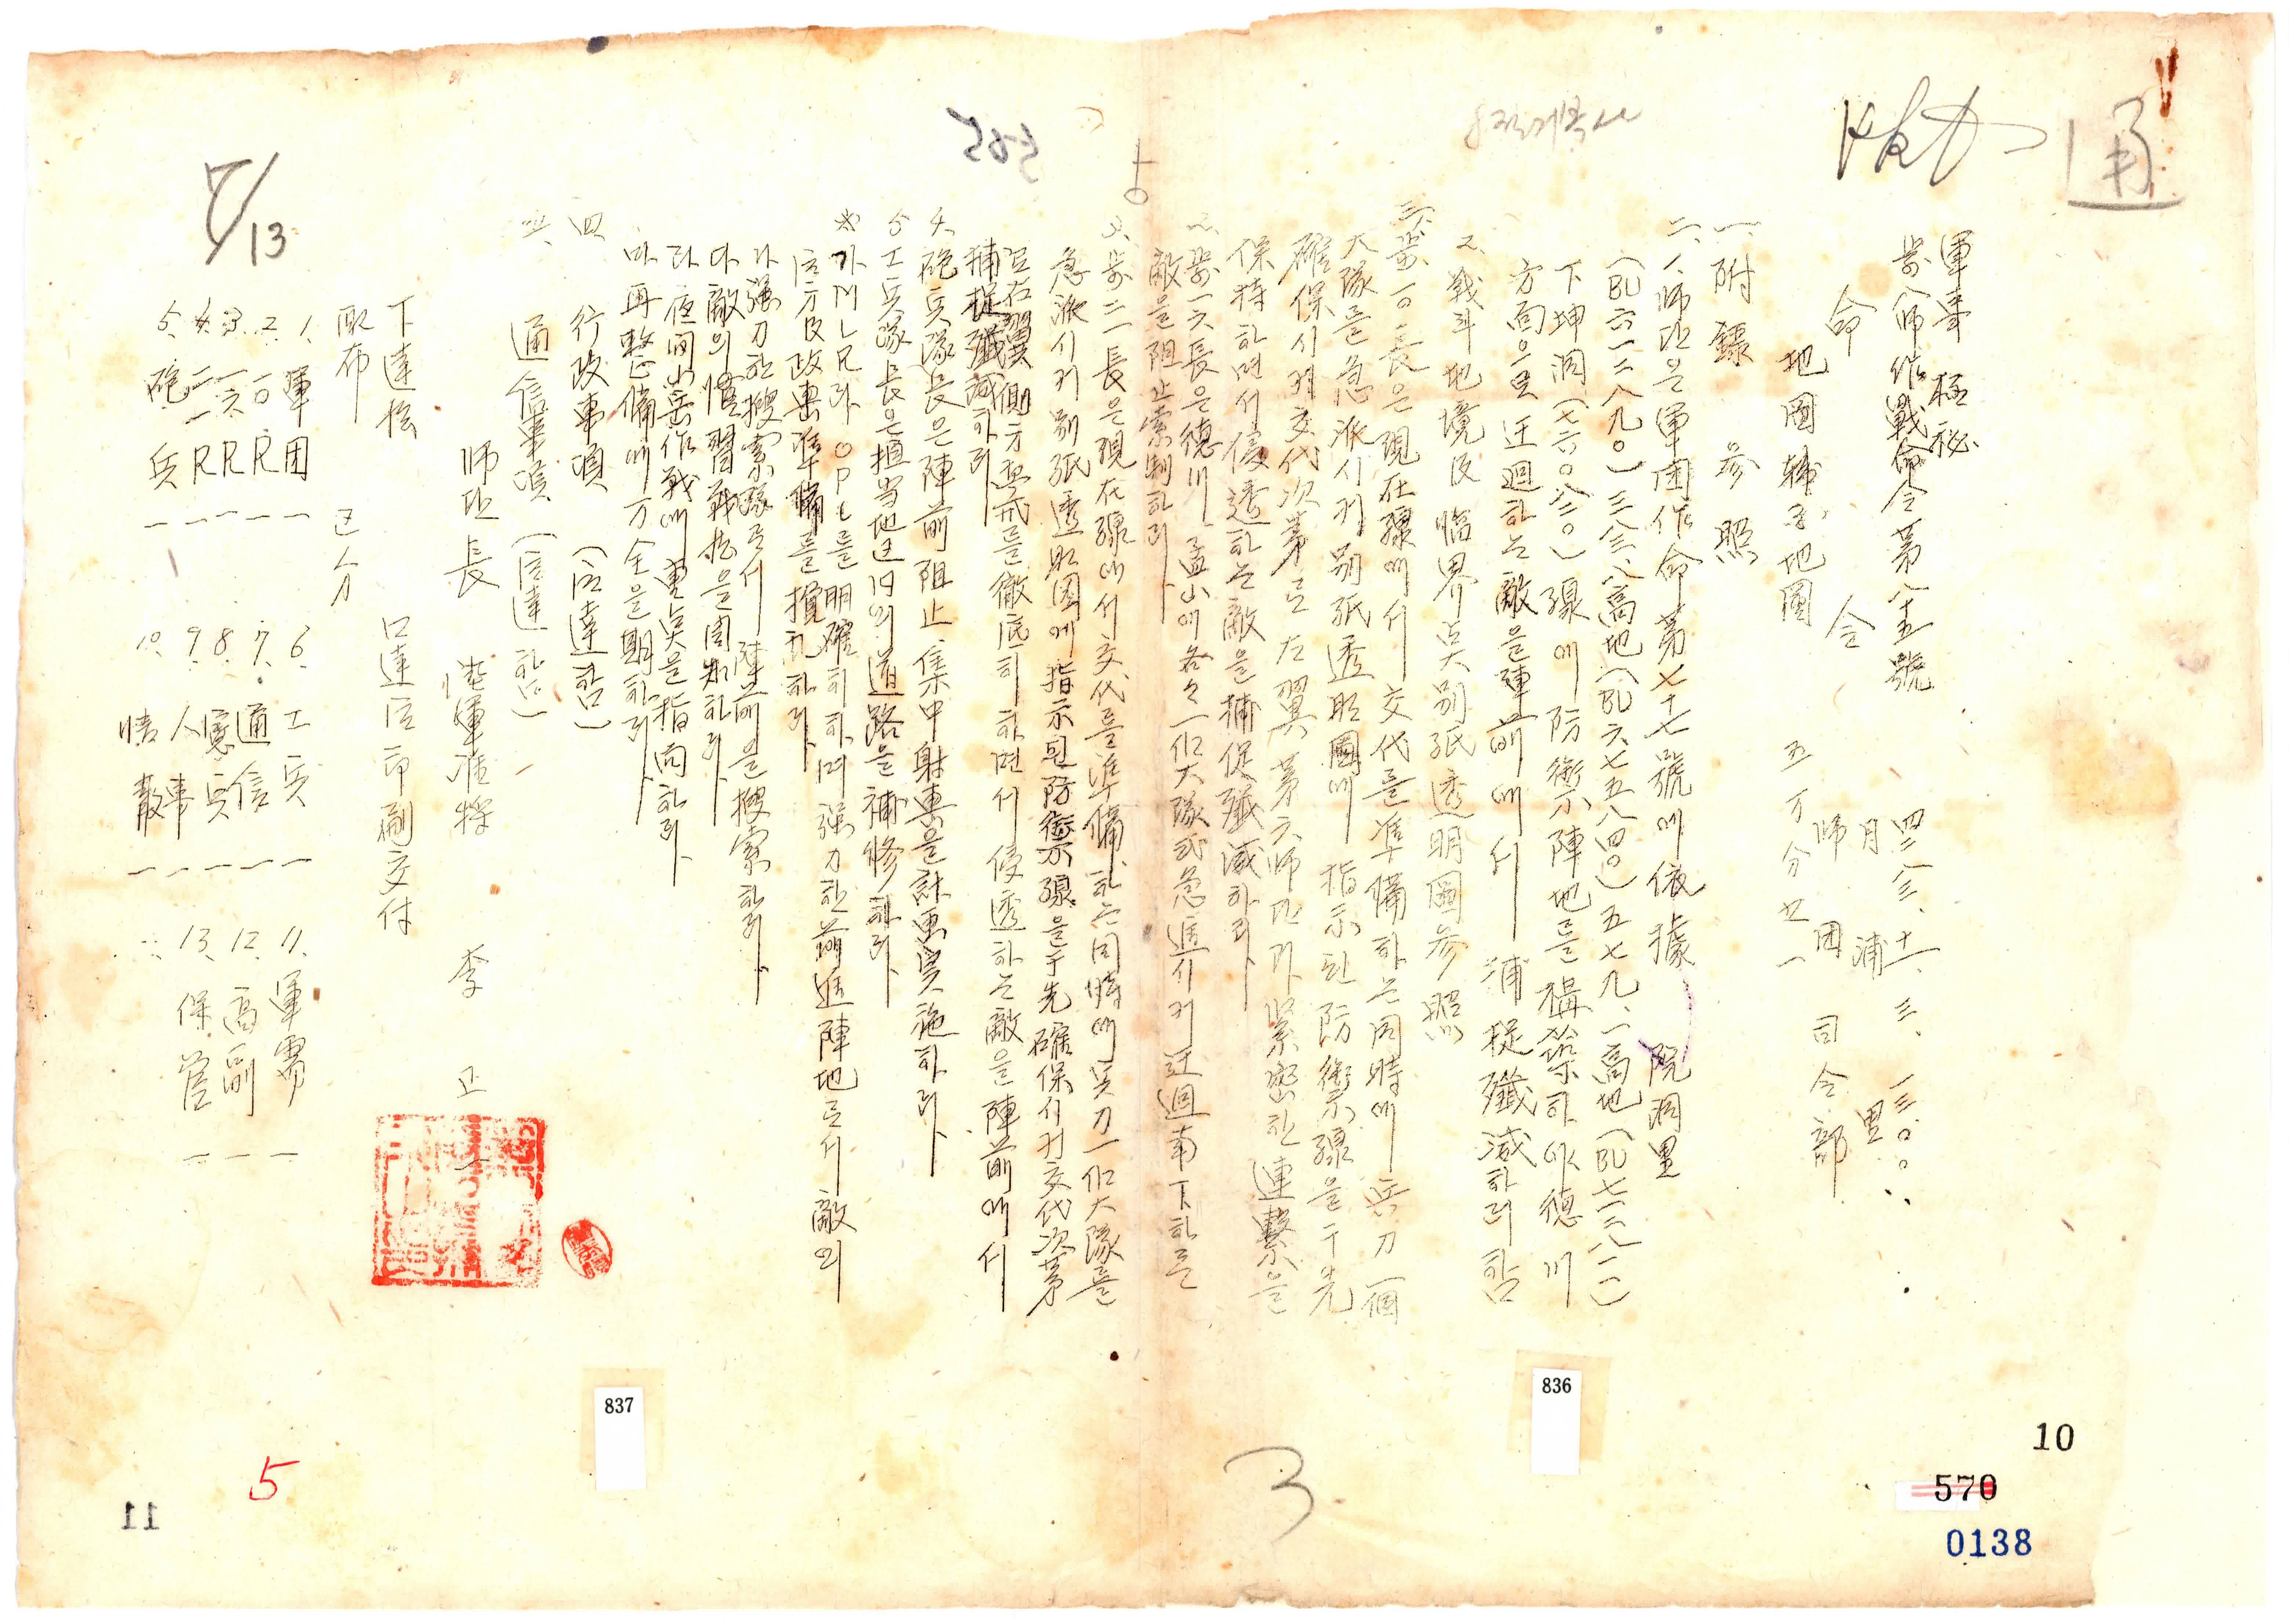 通
軍事 極祕
第八師作戰命令第八十五號
四二八三、十一、三、一三〇〇
月浦里
師団司令部
命令
地圖 五万分之一
一、附錄 參照
二、1、師団은軍団作命第七十七號에依據 院洞里
(BU六一二八九〇)三八三、八高地(BU六七五八四〇)五七九、一高地(BU七一二八一一)
下坤洞(七六〇八三〇)線에防禦陣地를構築하야德川
方面으로迂迴하는敵을陣前에서捕捉殲滅하려함
2、戰斗地境及臨界点大別紙透明圖參照
三、1、第一〇長은現在線에서交代를準備하는同時에兵力一個
大隊를急派시켜別紙透明圖에指示된防禦線을于先
確保시켜交代次第로左翼第六師団과緊密한連繫을
保持하면서侵透하는敵을捕促殲滅하라
2、第一六長은德川、孟山에各各一個大隊式急進시켜迂迴南下하는
敵을阻止索制하라
3、第二一長은現在線에서交代를準備하는同時에兵力一個大隊를
急派시켜別紙透明圖에指示된防禦線을于先確保시켜交代次第
로右翼側方警戒를徹底히하면서侵透하는敵을陣前에서
捕捉殲滅하라
4、砲兵隊長은陣前阻止集中射擊을計画實施하라
5、工兵隊長은担当地區內의道路을補修하라
가、MLR과OPL를明確히하며强力한前進陣地로서敵의
나、强力한搜索隊로서陣前을搜索하라
다、敵의慣習戰法을周知하라
라、夜間山岳作戰에重点을指向하라
마、再整備에万全을期하라
四、行政事項 (口達함)
五、通信事項 (口達함)
師団長 陸軍准將 李 正 一
下達法 口達后印刷交付
配布區分
1、軍団 一
2、一〇R 一
3、一六R 一
4、二一R 一
5、砲兵 一
6、工兵 一
7、通信 一
8、憲兵 一
9、人事 一
10、情報 一
11、軍需 一
12、高副 一
13、保管 一
7/13
836
837
3
5
10
11
570
0138